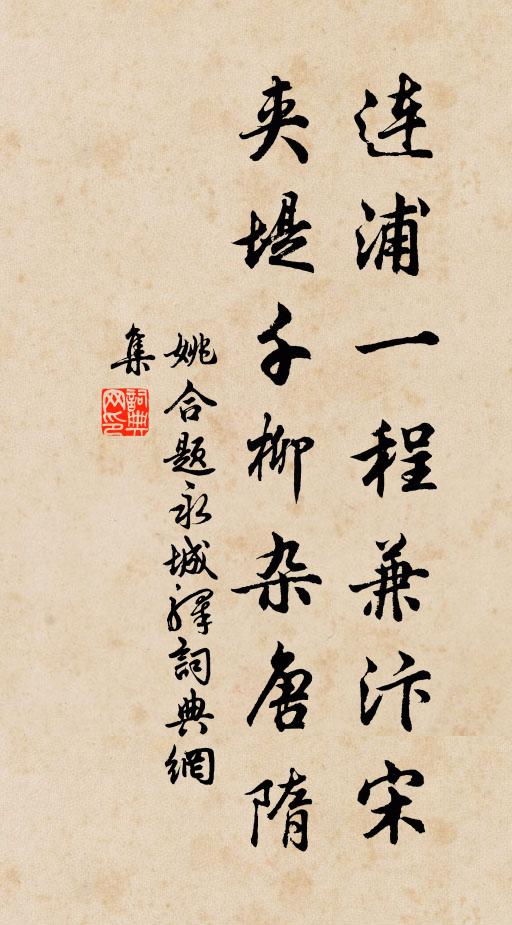 连浦一程兼汴宋
夹堤千柳杂唐隋
姚合题永城驛詞典網
集
詞典
网印